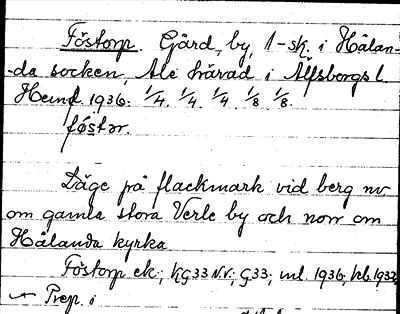 Föstorp. Gård, by, 1-sk. i Hålan-
-da socken, Ale härad i Älfsborgs l.
Hemf. 1936. 1/4. 1/4. 1/4. 1/8. 1/8.
fǿstər.
Läge på flackmark vid berg nv
om gamla stora Verle by och norr om
Hålanda kyrka
Föstorp ek; KG33 NV; G33; ml. 1936, hb. 1932
Prep. i